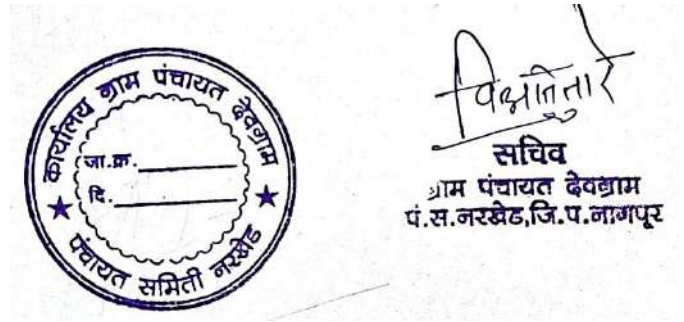 कार्यालय ग्राम पंचायत देवग्राम
जा.क्र.
दि.
पंचायत समिती नरखेड
सचिव
ग्राम पंचायत देवग्राम
पं.स.नरखेड,जि.प.नागपूर